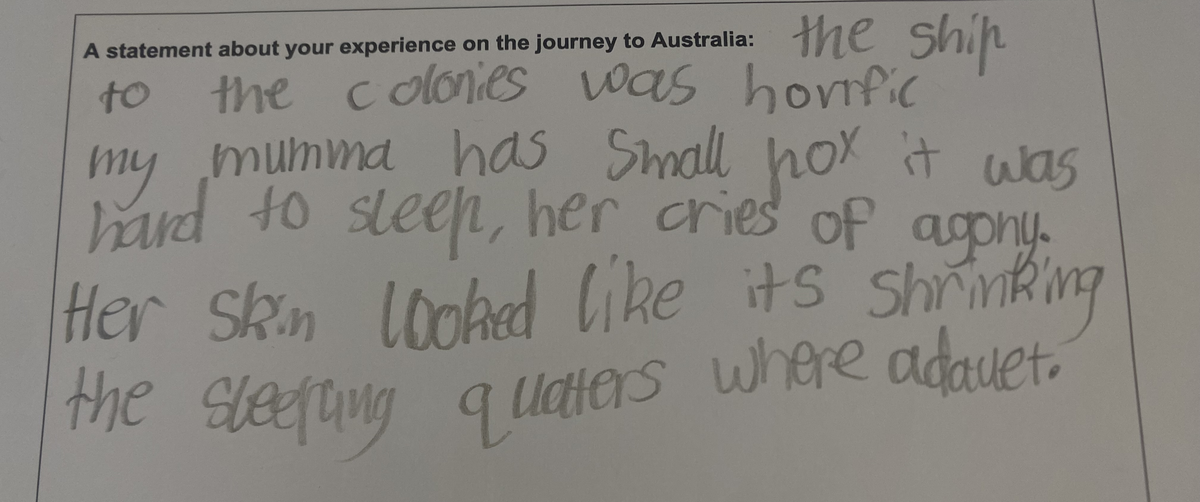 A statement about your experience on the journey to Australia: the ship
to the colonies was horrific
my mumma has Small pox it was
hard to sleep, her cries of agony.
Her Skin looked like its shrinking
the sleeping quatters where adauet.